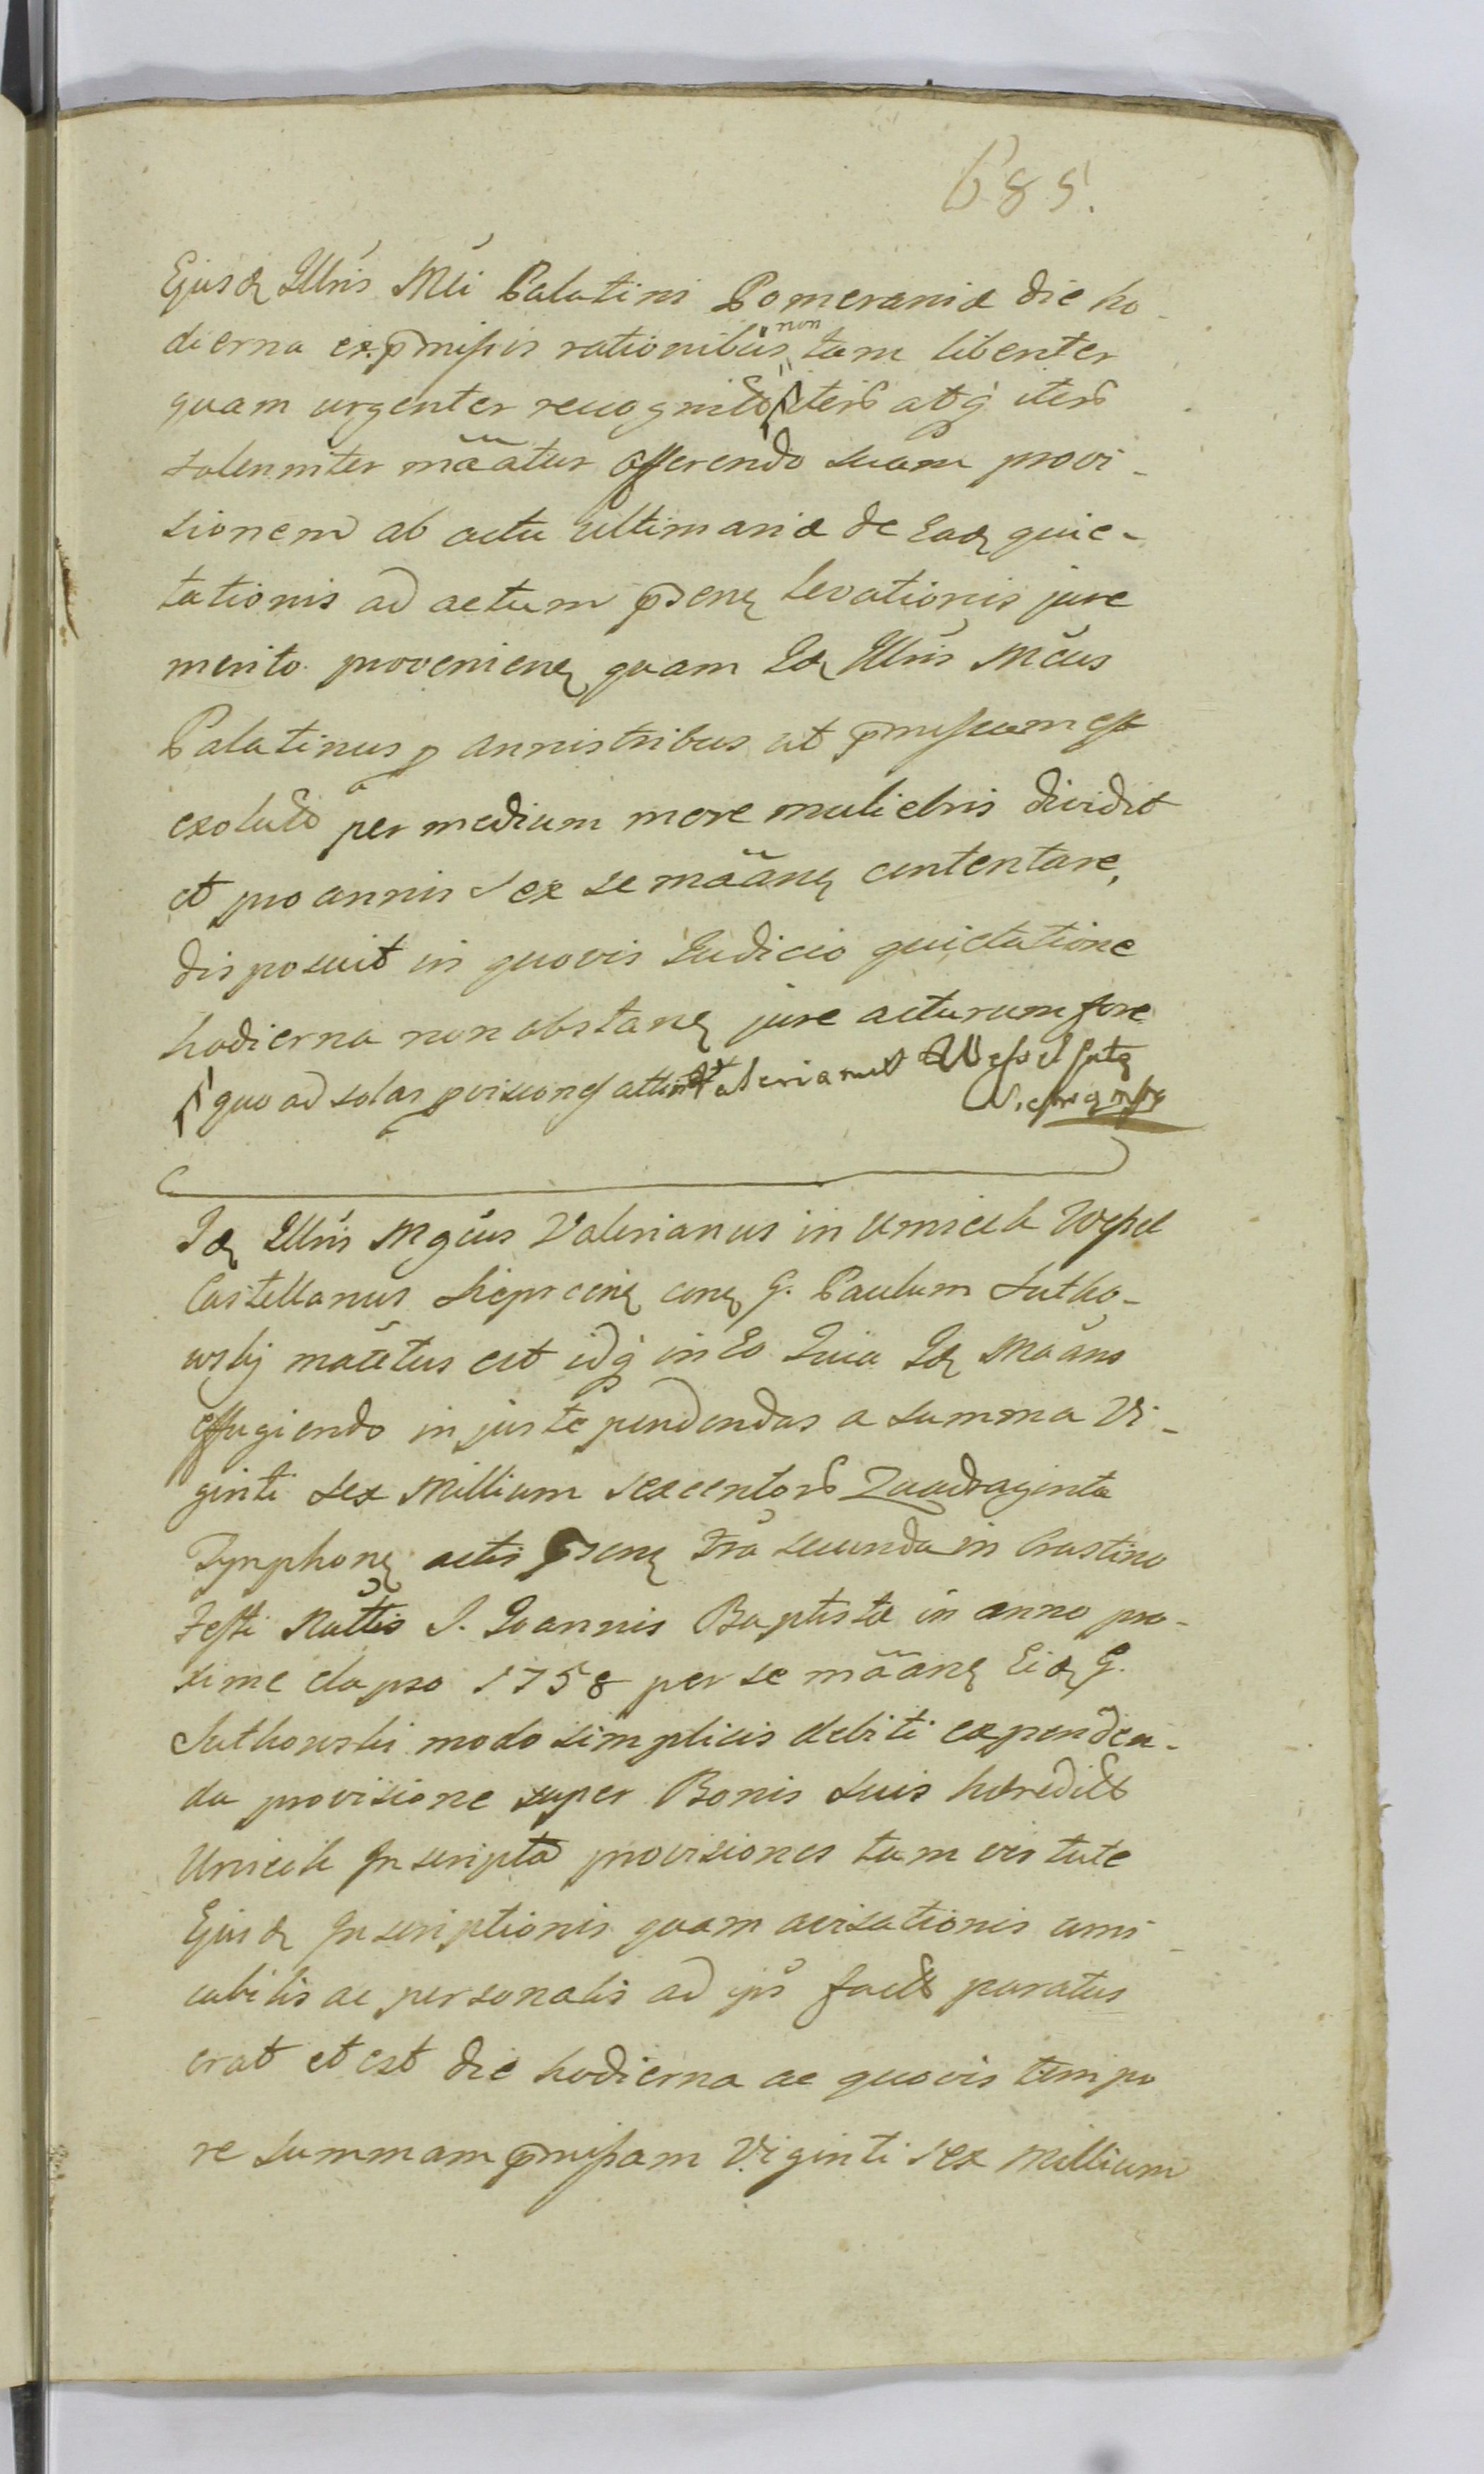 685.
Ejusdꝫ Illris Mci Palatini Pomeraniæ die ho-
dierna ex præmissis rationibus non tam libenter
quam urgenter recognito iterū atq iterū
solenniter mããtur offerendo suam provi-
sionem ab actu ultimariæ de Eadꝫ quie-
tationis ad actum præsenꝫ levationis jure
merito provenienꝫ quam Idꝫ Illris Mcus
Palatinus p annis tribus ut præmissum est
exoluto per medium more muliebris dividit
et pro annis sex se mããnꝫ contentare,
disposuit in quovis Iudicio quietatione
hodierna non obstanꝫ jure acturum fore
quo ad solas pvisiones attinet Valerianus Wessel
Idꝫ Illris Mgcus Valerianus in Umiełł Wessel
Castellanus Sieprcenꝫ conꝫ G. Paulum Sutko-
wskj mãtetus est idq in Eo Quia Idꝫ Mããns
effugiendo injuste pendendas a summa Vi-
ginti sex Millium sexcentorū Quadraginta
Tynphonꝫ actis præsenꝫ Fria secunda in Crastino
Festi Nattis S. Joannis Baptistæ in anno pro-
xime elapso 1758 per se mããnꝫ Eidꝫ G.
Sutkowski modo simplicis debiti expenden-
da provisione super Bonis suis hæredit
Umiełł Inscripta provisiones tam virtute
Ejusdꝫ Inscriptionis quam avisationis ami-
cabilis ac personalis ad ips fact paratus
erat et est die hodierna ac quovis tempo
re summam præmissam Viginti sex Millium